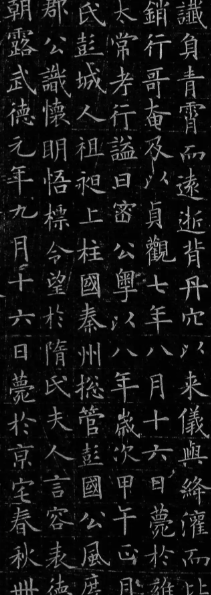 讖負青霄而遠逝背丹穴以来儀與絳灌而比
銷行哥奄及以貞觀七年八月十六日薨於雍
太常考行謚曰密公粵以八年歲次甲午正月
氏彭城人祖昶上柱國秦州揔管彭國公風度
郡公識懷明悟標令望於隋氏夫人言容表德
朝露武德元年九月十六日薨於京宅春秋卌